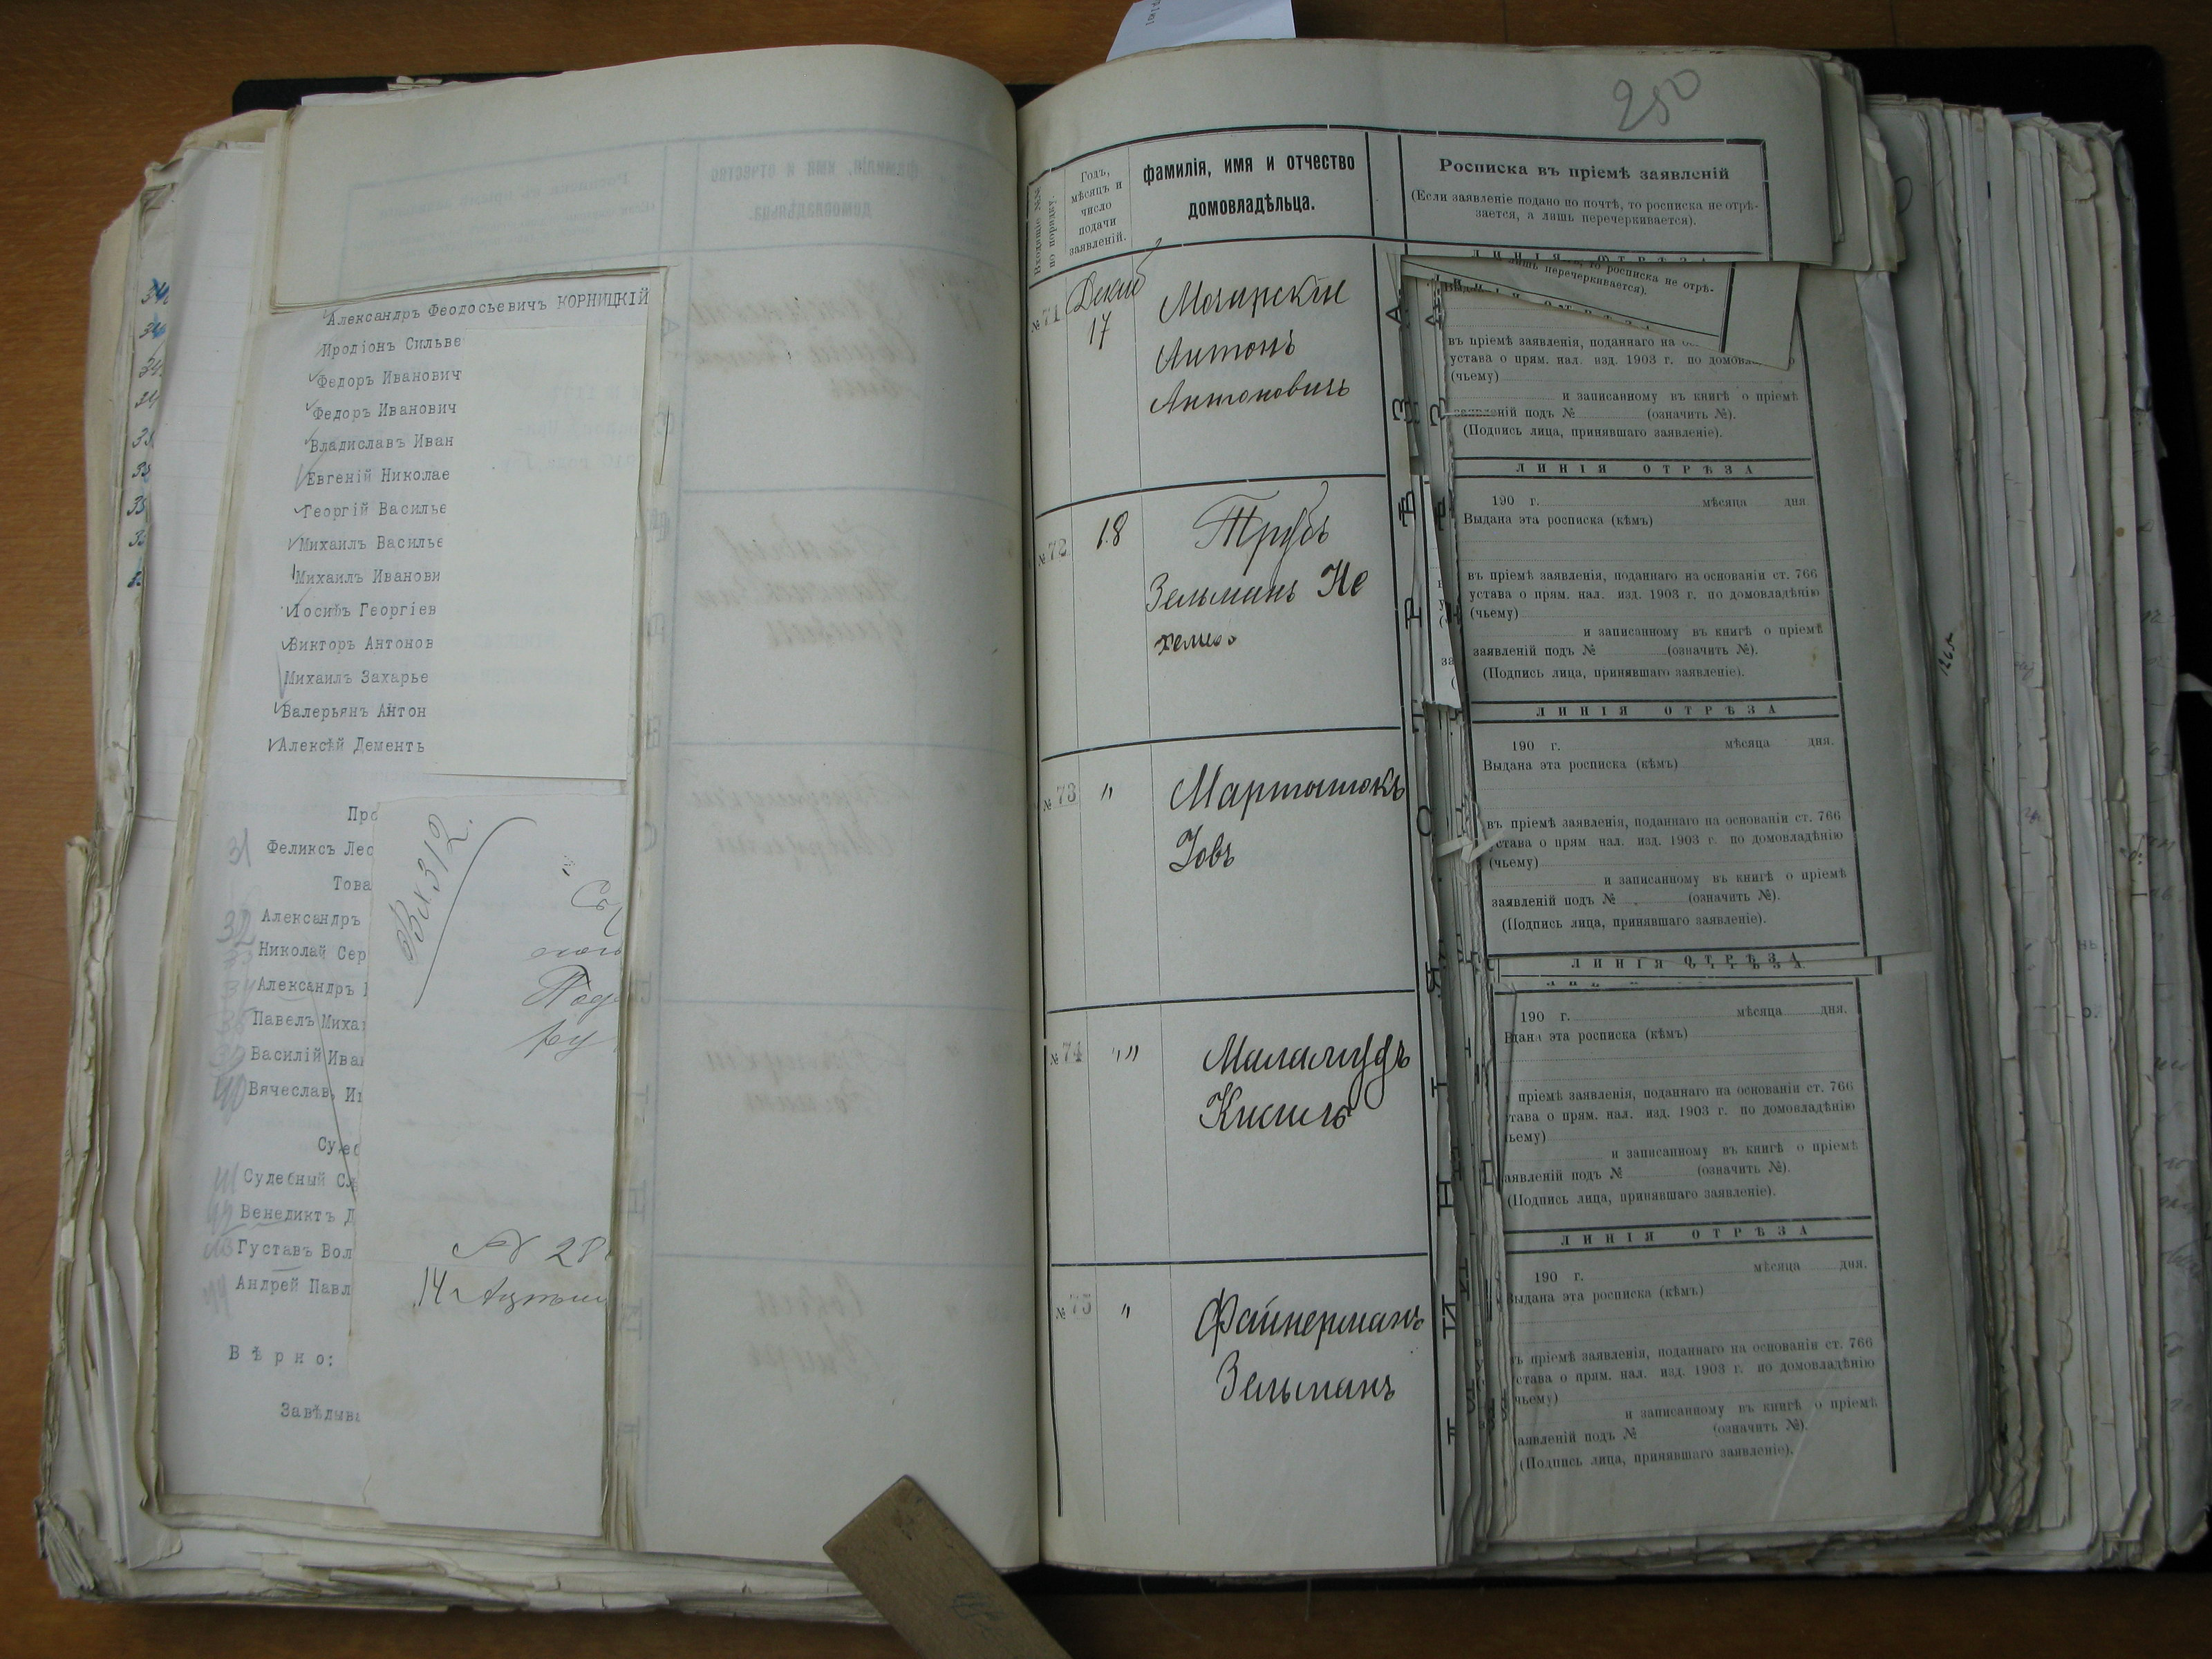 Александръ Феодосьевичъ КОРНИЦКІЙ
Иродіонъ Сильве
Федоръ Иванович
Федоръ Иванович
Владиславъ Иван
Евгеній Николае
Георгій Василье
Михаилъ Василье
Михаилъ Иванови
Іосифъ Георгіев
Викторъ Антонов
Михаилъ Захарье
Валерьянъ Антон
Алексѣй Дементь
Про
31 Феликсъ Лес
Това
32 Александръ
Николай Сер
Александръ
Павелъ Миха
Василій Ива
40 Вячеслав
41 Судебный Сл
42 Венедиктъ Д
43 Густавъ Вол
44 Андрей Павл
Вѣрно:
Завѣдыва
Вх 312.
№ 28
250
Входящіе №№ по порядку.
Годъ, мѣсяцъ и число подачи заявленій.
фамилія, имя и отчество
домовладѣльца.
Росписка въ пріемѣ заявленій
(Если заявленіе подано по почтѣ, то росписка не отрѣ-
зается, а лишь перечеркивается).
№ 71 Декаб 17
Мочарскій
Антонъ
Антоновичъ
№ 72 18
Трубъ
Зельманъ Не
№ 73 "
Мартынюкъ
Іовъ
№ 74 "
Маламудъ
Кисиль
№ 75 "
Файнерманъ
Зельманъ
лишь перечеркивается).
въ пріемѣ заявленія, поданнаго на
устава о прям. нал. изд. 1903 г. по домовл
(чьему)
и записанному въ книгѣ о пріемѣ
заявленій подъ № (означить №).
(Подпись лица, принявшаго заявленіе).
ЛИНІЯ ОТРѢЗА
190 г. мѣсяца дня.
Выдана эта росписка (кѣмъ)
въ пріемѣ заявленія, поданнаго на основаніи ст. 766
устава о прям. нал. изд. 1903 г. по домовладѣнію
(чьему)
и записанному въ книгѣ о пріемѣ
заявленій подъ № (означить №).
(Подпись лица, принявшаго заявленіе).
ЛИНІЯ ОТРѢЗА
190 г. мѣсяца дня.
Выдана эта росписка (кѣмъ)
въ пріемѣ заявленія, поданнаго на основаніи ст. 766
устава о прям нал. изд. 1903 г. по домовладѣнію
(чьему)
и записанному въ книгѣ о пріемѣ
заявленій подъ № (означить №).
(Подпись лица, принявшаго заявленіе).
ЛИНІЯ ОТРѢЗА
190 г. мѣсяца дня.
дана эта росписка (кѣмъ)
пріемѣ заявленія, поданнаго на основаніи ст. 766
тава о прям. нал. изд. 1903 г. по домовладѣнію
ьему)
и записанному въ книгѣ о пріемѣ
аявленій подъ № (означить №).
(Подпись лица, принявшаго заявленіе).
ЛИНІЯ ОТРѢЗА
190 г. мѣсяца дня.
Выдана эта росписка (кѣмъ)
ъ пріемѣ заявленія, поданнаго на основаніи ст. 766
става о прям. нал. изд. 1903 г. по домовладѣнію
чьему)
и записанному въ книгѣ о пріемѣ
аявленій подъ № (означить №).
(Подпись лица, принявшаго заявленіе).